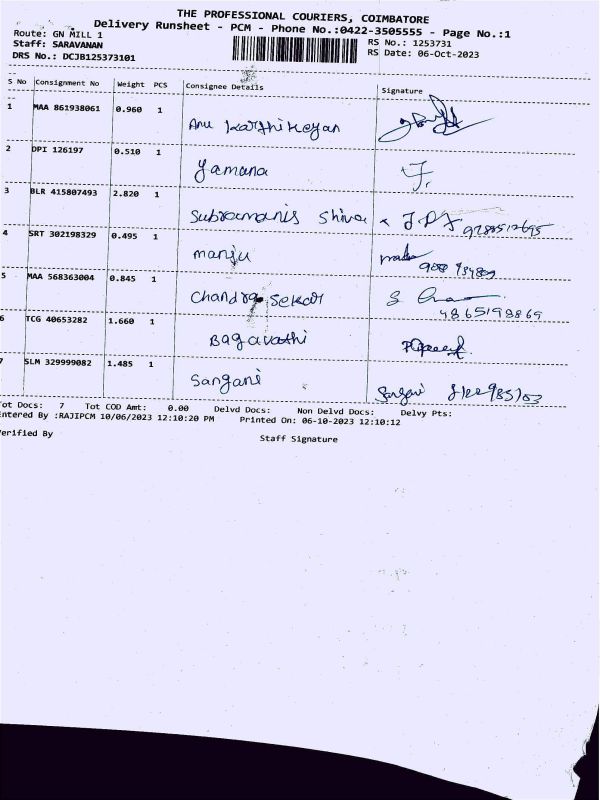 THE PROFESSIONAL COURIERS, COIMBATORE
Delivery Runsheet - PCM - Phone No.:0422-3505555 - Page No.:1
Route: GN MILL 1
Staff: SARAVANAN RS No.: 1253731
DRS No.: DCJB125373101 RS Date: 06-Oct-2023
S No Consignment No Weight PCS Consignee Details Signature
1 MAA 861938061 0.960 1 Anu Karthikeyan
2 DPI 126197 0.510 1 Yamana
3 BLR 415807493 2.820 1 Subramanis Shiva
4 SRT 302198329 0.495 1 manju
5 MAA 568363004 0.845 1 Chandra Sekar
4865198869
6 TCG 40653282 1.660 1 Bagavathi
7 SLM 329999082 1.485 1 Sangani
Tot Docs: 7 Tot COD Amt: 0.00 Delvd Docs: Non Delvd Docs: Delvy Pts:
Entered By :RAJIPCM 10/06/2023 12:10:20 PM Printed On: 06-10-2023 12:10:12
Verified By Staff Signature